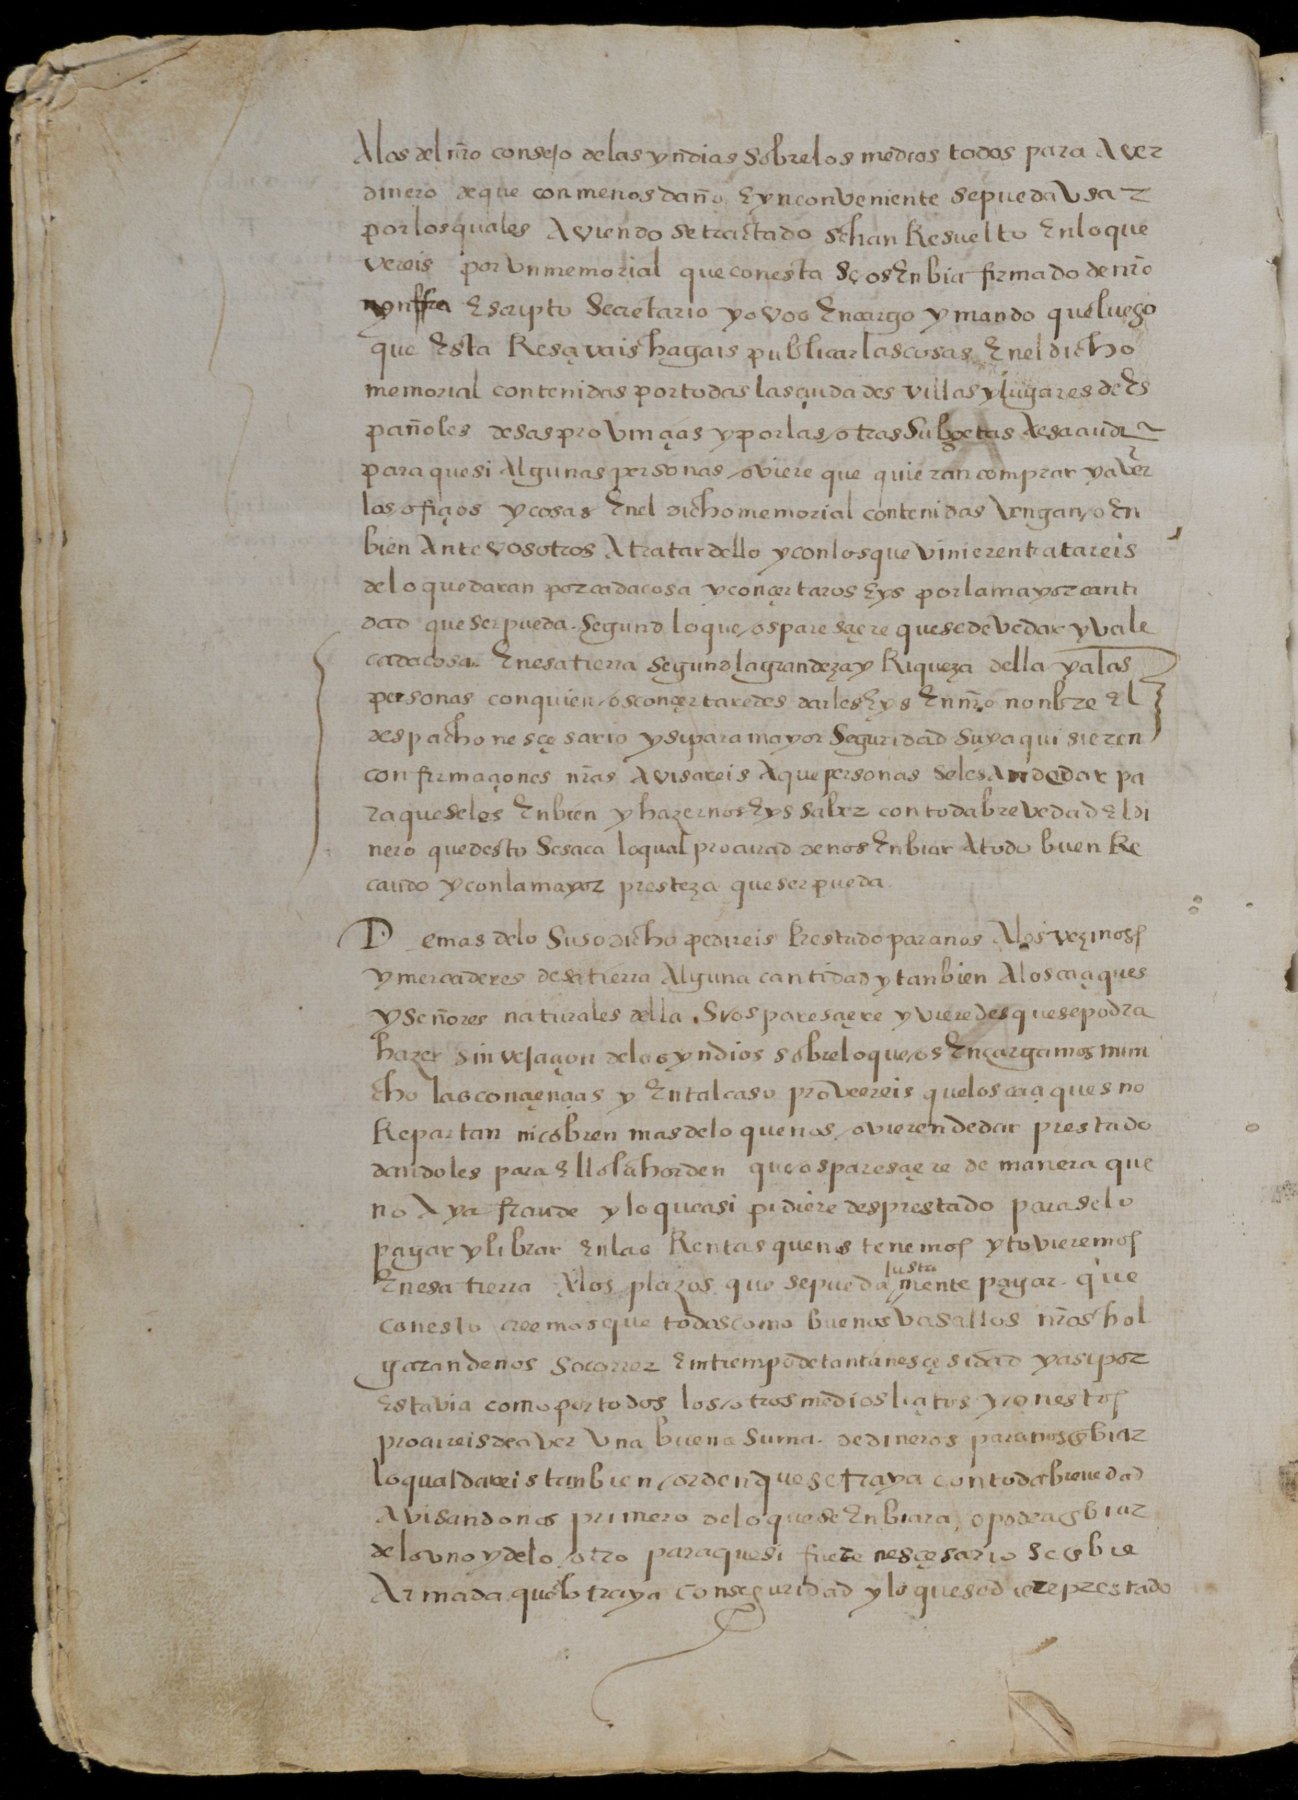 A los del nro consejo de las yndias sobre los medios todos para Aver
dinero de que con menos daño E ynconveniente se pueda Usar
por los quales Aviendo se tractado se han Resuelto En lo que
vereis por Un memorial que con esta Se os Enbia firmado de nro
ynffra Escripto Secretario yo vos Encargo y mando que luego
que Esta Resçivais hagais publicar las cosas En el dicho
memorial contenidas por todas las çiudades villas y lugares de Es
pañoles desas provinçias y por las otras Subgetas A esa audiª
para que si Algunas personas oviere que quieran comprar y aver
los ofiçios y cosas En el dicho memorial contenidas Vengan o En
bien Ante vosotros A tratar dello y con los que vinieren tratareis
de lo que daran por cada cosa y conçertaros Eys por la mayor canti
dad que ser pueda. Segund lo que os paresçiere que se deve dar y vale
cada cosa En esa tierra Segund la grandeza y Riqueza della y a las
personas con quien os conçertaredes darles Eys En nro nonbre El
despacho nesçesario y si para mayor Seguridad Suya quisieren
confirmaçiones nras Avisareis A que personas se les An de dar pa
ra que se les Enbien y hazernos Eys saber con toda brevedad El di
nero que desto Se saca lo qual procurad de nos Enbiar A todo buen Re
caudo y con la mayor presteza que ser pueda.
Demas de lo Suso dicho pedireis Prestado para nos A los vezinos
y mercaderes desa tierra Alguna cantidad y tanbien A los caçiques
y Señores naturales della. Si os paresçiere y vieredes que se podra
hazer sin vejaçion de los yndios sobre lo que os Encargamos mun
cho las conçiençias y En tal caso proveereis que los caçiques no
Repartan ni cobren mas de lo que nos ovieren de dar prestado
dandoles para Ello la horden que os paresçiere de manera que
no Aya fraude y lo que asi pidieredes prestado para se lo
pagar y librar En las Rentas que nos tenemos y tovieremos
En esa tierra A los plazos que se pueda justamente pagar. que
con esto creemos que todos como buenos vasallos nros hol
garan de nos Socorrer En tiempo de tanta nesçesidad y asi por
Esta via como por todos los otros medios liçitos y onestos
procureis de aver Una buena Suma de dineros para nos enbiar
lo qual dareis tanbien orden que se traya con toda brevedad
Avisandonos primero de lo que se Enbiara o podra enbiar
de lo uno y de lo otro para que si fuere nesçesario se enbie
Armada que lo traya con seguridad y lo que se diere prestado